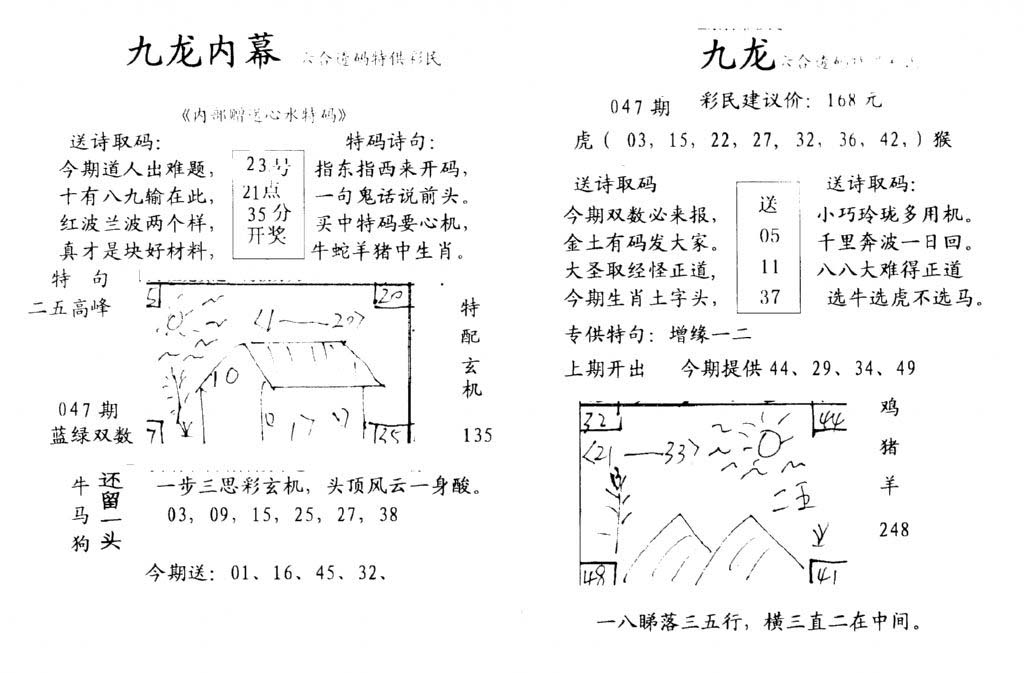 九龙内幕 六合造码特供彩民
《内部赠送心水特码》
送诗取码：
今期道人出难题，
十有八九输在此，
红波兰波两个样，
真才是块好材料，
23号
21点
35分
开奖
特码诗句：
指东指西来开码，
一句鬼话说前头。
买中特码要心机，
牛蛇羊猪中生肖。
特 句
二五高峰
047期
蓝绿双数
20
<1——20>
10
35
特
配
玄
机
135
牛
马
狗
还
留
一
头
一步三思彩玄机，头顶风云一身酸。
03，09，15，25，27，38
今期送：01、16、45、32、
九龙
047期 彩民建议价：168元
虎（ 03，15，22，27，32，36，42，）猴
送诗取码
今期双数必来报，
金土有码发大家。
大圣取经怪正道，
今期生肖土字头，
送
05
11
37
送诗取码：
小巧玲珑多用机。
千里奔波一日回。
八八大难得正道
选牛选虎不选马。
专供特句：增缘一二
上期开出 今期提供44、29、34、49
32
44
<21——33>
二五
48
41
鸡
猪
羊
248
一八睇落三五行，横三直二在中间。